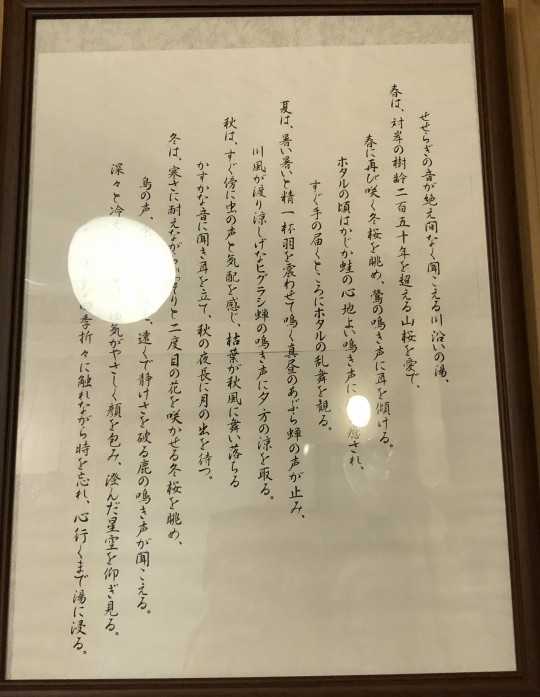 せせらぎの音が絶え間なく聞こえる川沿いの湯、
春は、対岸の樹齢二百五十年を超える山桜を愛で、
春に再び咲く冬桜を眺め、鶯の鳴き声に耳を傾ける。
ホタルの頃はかじか蛙の心地よい鳴き声に 惑され、
すぐ手の届くところにホタルの乱舞を観る。
夏は、暑い暑いと精一杯羽を震わせて鳴く真昼のあぶら蝉の声が止み、
川風が渡り涼しげなヒグラシ蝉の鳴き声に夕方の涼を取る。
秋は、すぐ傍に虫の声と気配を感じ、枯葉が秋風に舞い落ちる
かすかな音に聞き耳を立て、秋の夜長に月の出を待つ。
冬は、寒さに耐えながら りと二度目の花を咲かせる冬桜を眺め、
鳥の声、 遠くで静けさを破る鹿の鳴き声が聞こえる。
深々と冷え 気がやさしく顔を包み、澄んだ星空を仰ぎ見る。
季折々に触れながら時を忘れ、心行くまで湯に浸る。